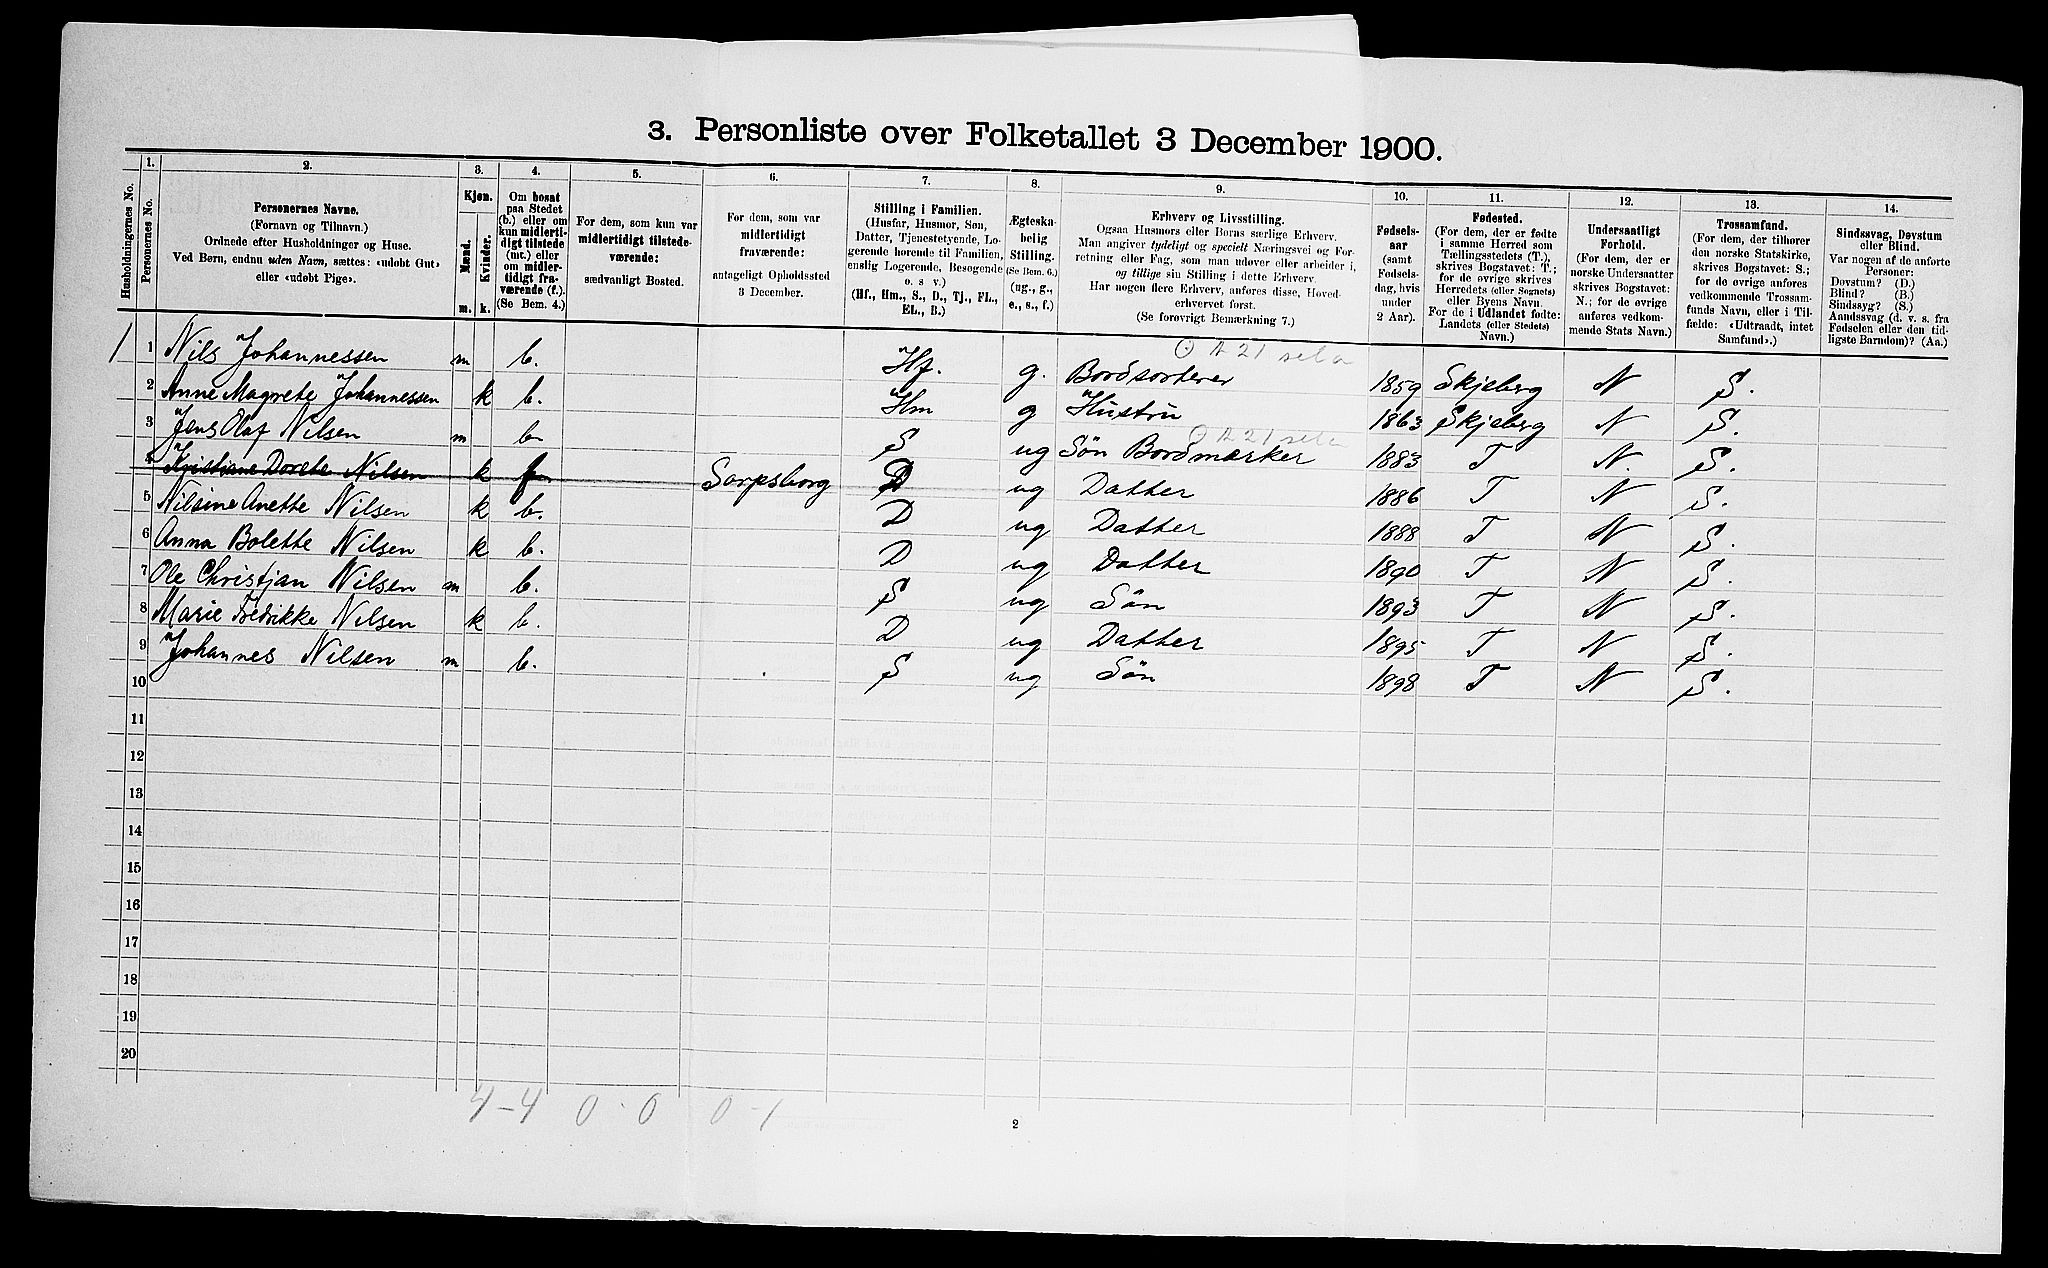 3. Personliste over Folketallet 3 December 1900.
Husholdningernes No.
1.
Personernes No.
2.
Personernes Navne.
(Fornavn og Tilnavn.)
Ordnede efter Husholdninger og Huse.
Ved Børn, endnu uden Navn, sættes: «udøbt Gut»
eller «udøbt Pige».
3.
Kjøn.
Mænd.
Kvinder.
m. k.
4.
Om bosat
paa Stedet
(b.) eller om
kun midlerti-
digt tilstede
(mt.) eller
om midler-
tidigt fra-
værende (f.).
(Se Bem. 4.)
5.
For dem, som kun var
midlertidigt tilstede-
værende:
sædvanligt Bosted.
6.
For dem, som var
midlertidigt
fraværende:
antageligt Opholdssted
3 December.
7.
Stilling i Familien.
(Husfar, Husmor, Søn,
Datter, Tjenestetyende, Lo-
gerende hørende til Familien,
enslig Logerende, Besøgende
o. s v.)
(Hf., Hm., S., D., Tj., FL.,
EL., B.)
8.
Ægteska-
belig
Stilling.
(Se Bem. 6.)
(ug., g.,
e., s., f.)
9.
Erhverv og Livsstilling.
Ogsaa Husmors eller Børns særlige Erhverv.
Man angiver tydeligt og specielt Næringsvei og For-
retning eller Fag, som man udøver eller arbeider i,
og tillige sin Stilling i dette Erhverv.
Har nogen flere Erhverv, anføres disse, Hoved-
erhvervet først.
(Se forøvrigt Bemærkning 7.)
10.
Fødsels-
aar
(samt
Fødsels-
dag, hvis
under
2 Aar).
11.
Fødested.
(For dem, der er fødte
i samme Herred som
Tællingsstedets (T.),
skrives Bogstavet: T.;
for de øvrige skrives
Herredets (eller Sognets)
eller Byens Navn.
For de i Udlandet fødte:
Landets (eller Stedets)
Navn.)
12.
Undersaatligt
Forhold.
(For dem, der er
norske Undersaatter
skrives Bogstavet:
N.; for de øvrige
anføres vedkom-
mende Stats Navn.)
13.
Trossamfund.
(For dem, der tilhører
den norske Statskirke,
skrives Bogstavet: S.;
for de øvrige anføres
vedkommende Trossam-
funds Navn, eller i Til-
fælde: «Udtraadt, intet
Samfund».)
14.
Sindssvag, Døvstum
eller Blind.
Var nogen af de anførte
Personer:
Døvstum? (D.)
Blind? (B.)
Sindssyg? (S.)
Aandssvag (d. v. s. fra
Fødselen eller den tid-
ligste Barndom)? (Aa.)
1 1 Nils Johannessen m b. Hf. g. Bordsorterer 1859 Skjeberg N S.
2 Anne Magrete Johannessen k b. Hm g Hustru 1863 Skjeberg N S.
3 Jens Olaf Nilsen m b S ug Søn Bordmærker 1883 T N. S.
4 Kristiane Dorete Nilsen k f Sarpsborg D ug Datter 1886 T N S.
5 Nilsine Anette Nilsen k b. D ug Datter 1888 T N S.
6 Anna Bolette Nilsen k b. D ug Datter 1890 T N S.
7 Ole Christjan Nilsen m b. S ug Søn 1893 T N S.
8 Marie Fredrikke Nilsen k b. D ug Datter 1895 T N S.
9 Johannes Nilsen m b. S ug Søn 1898 T N S.
10
11
12
13
14
15
16
17
18
19
20
4-4 0-0 0-1
2